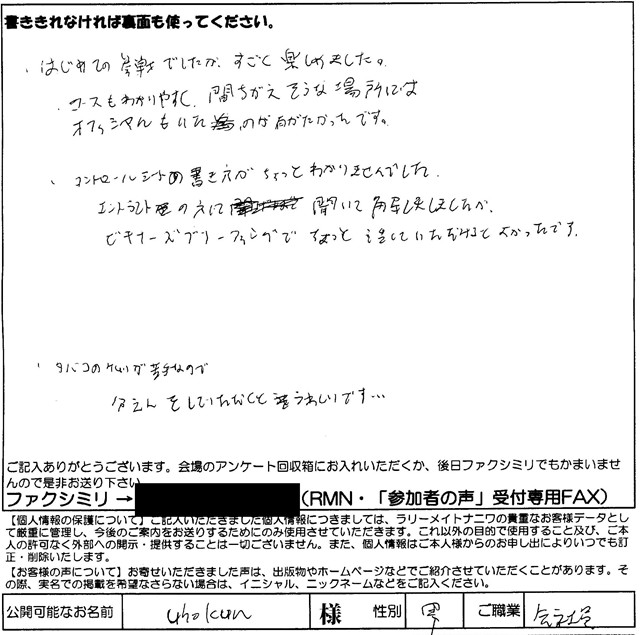 書ききれなければ裏面も使ってください。
・はじめての参戦でしたが、すごく楽しめました。
・コースもわかりやすく、間ちがえそうな場所には
オフィシャルもいた為、のがありがたかったです。
・コントロールシートの書き方がちょっとわかりませんでした。
エントラントの方に聞いて解決しましたが、
ビギナーズブリーフィングでちょっと話していただけるとよかったです。
・タバコのケムリが苦手なので
分えんをしていただくと うれしいです…
ご記入ありがとうございます。会場のアンケート回収箱にお入れいただくか、後日ファクシミリでもかまいませ
んので是非お送り下さい。
ファクシミリ → (RMN・「参加者の声」受付専用FAX)
【個人情報の保護について】ご記入いただきました個人情報につきましては、ラリーメイトナニワの貴重なお客様データとし
て厳重に管理し、今後のご案内をお送りするためにのみ使用させていただきます。これ以外の目的で使用すること及び、ご本
人の許可なく外部への開示・提供することは一切ございません。また、個人情報はご本人様からのお申し出によりいつでも訂
正・削除いたします。
【お客様の声について】お寄せいただきました声は、出版物やホームページなどでご紹介させていただくことがあります。そ
の際、実名での掲載を希望なさらない場合は、イニシャル、ニックネームなどをご記入ください。
公開可能なお名前 uhokun 様 性別 男 ご職業 会社員